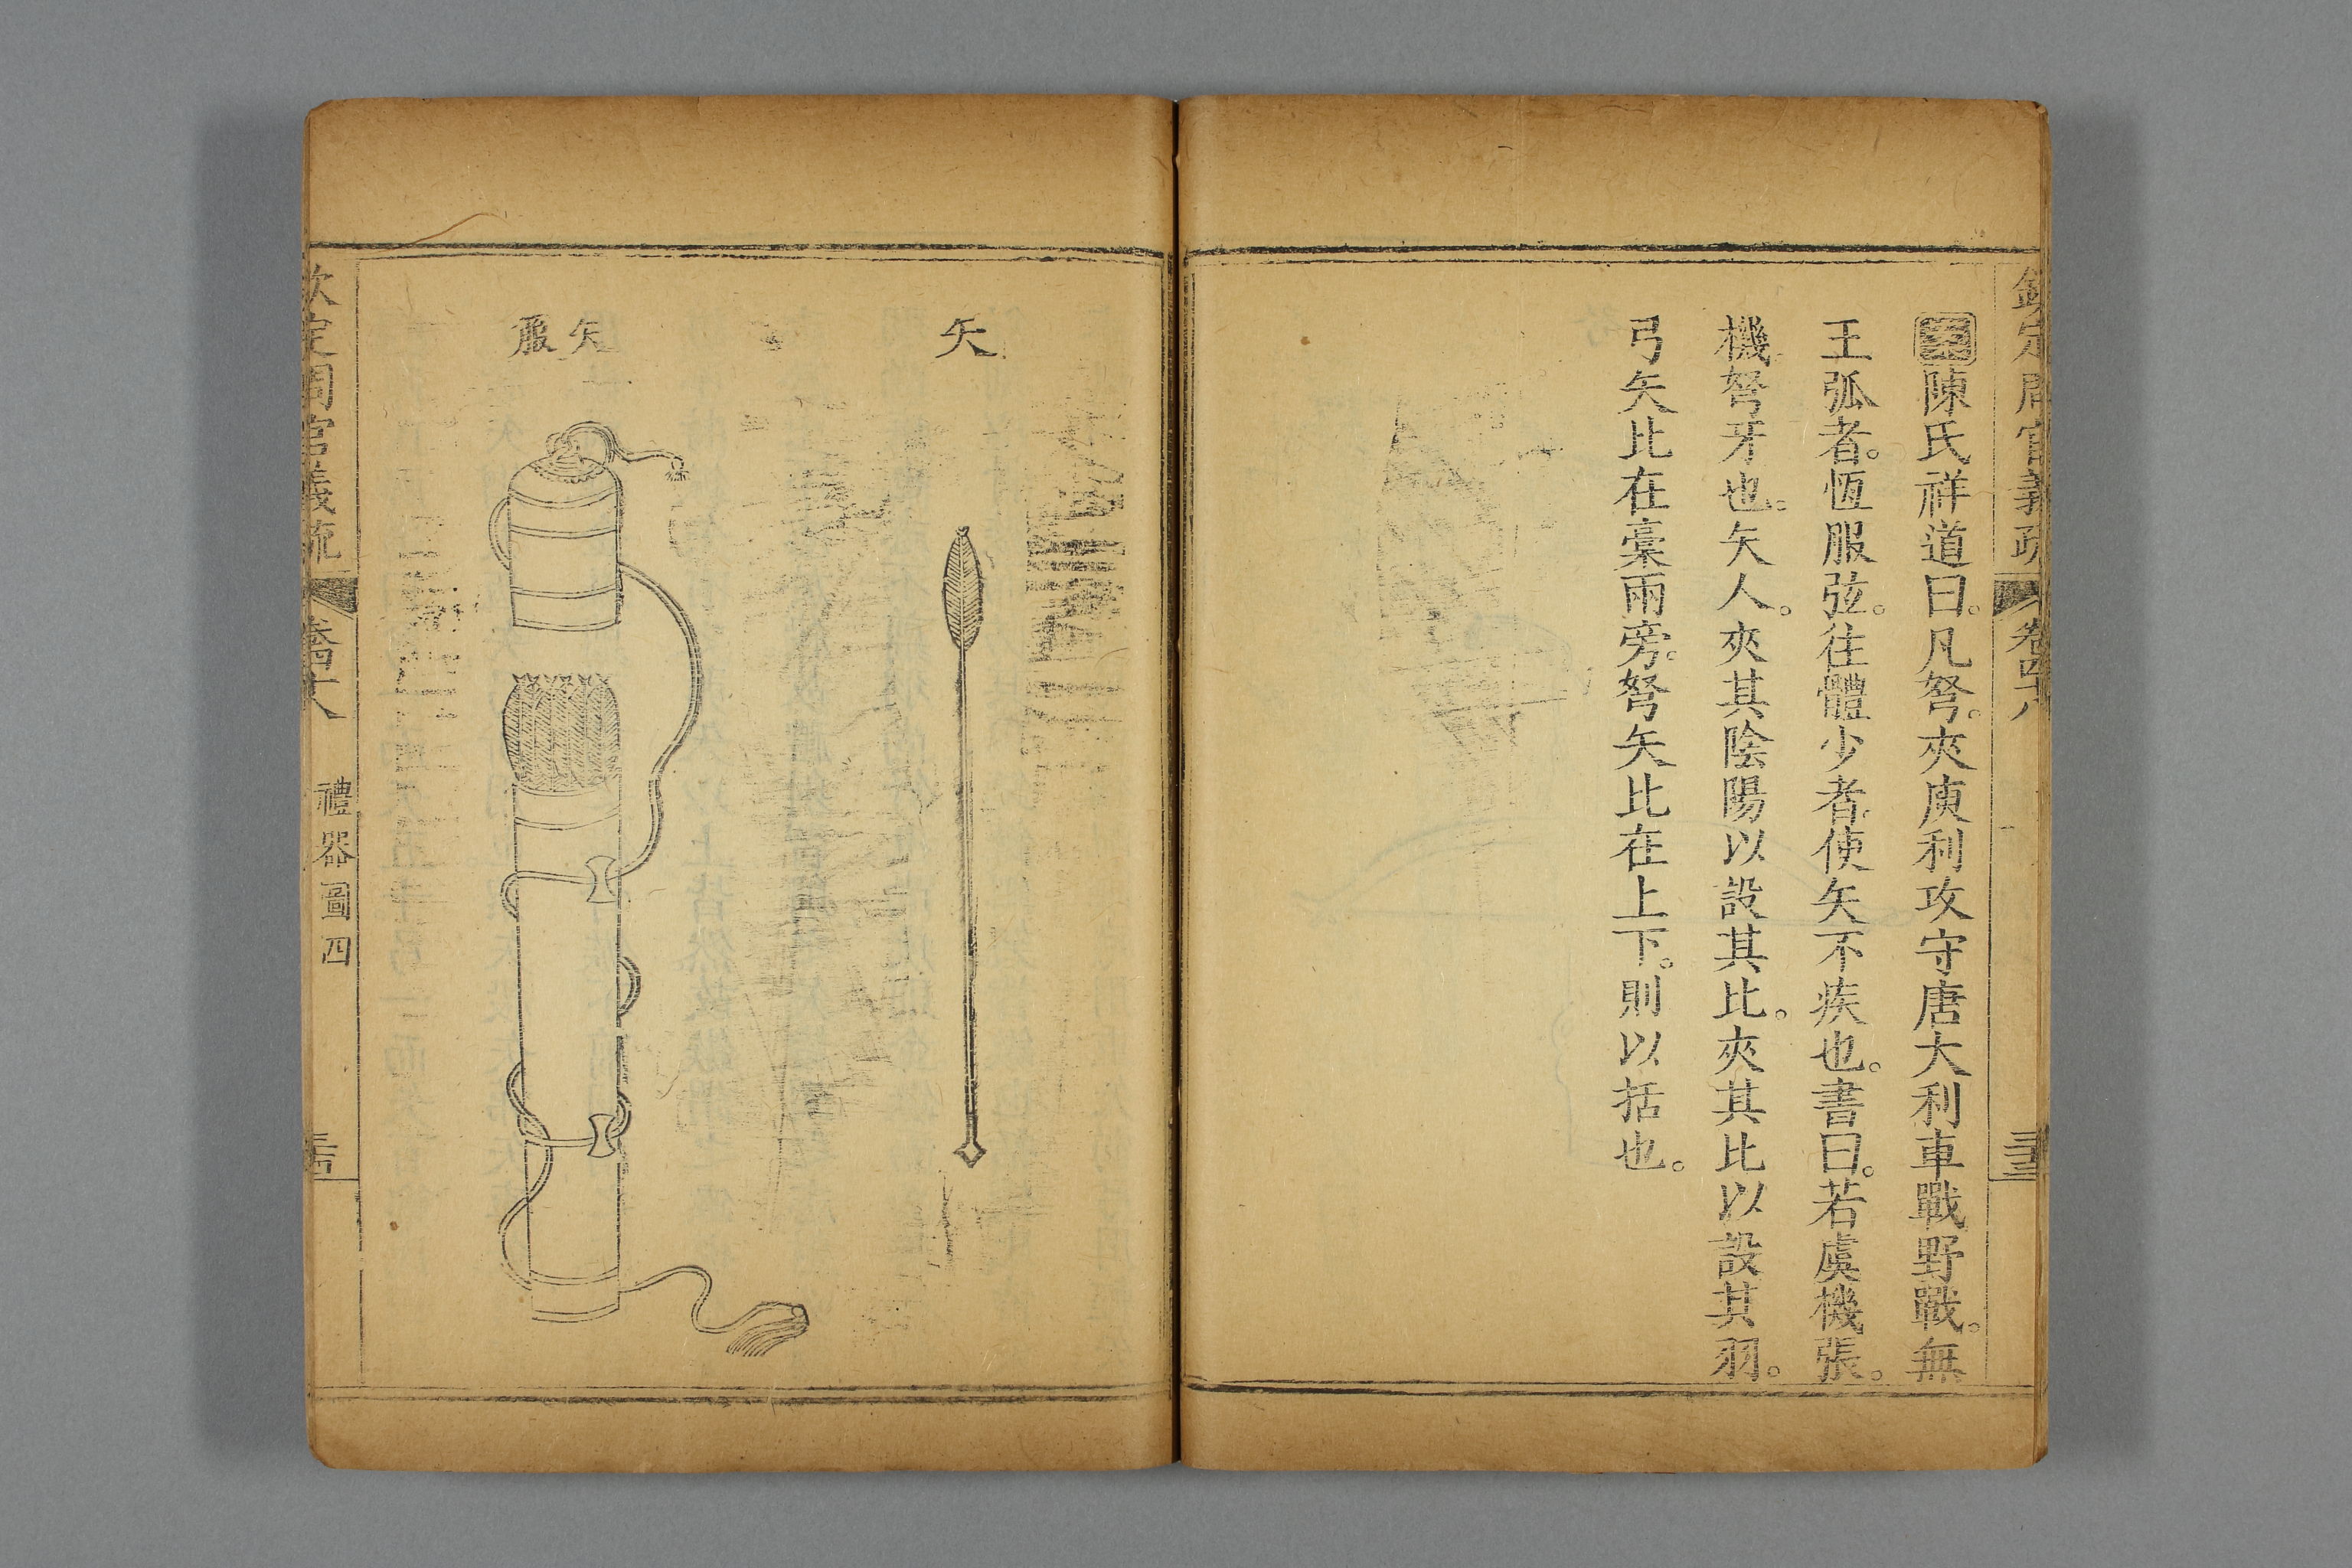 欽定周官義疏 卷四十八
陳氏祥道曰。凡弩。夾庾利攻守唐大利車戰野戰。無
王弧者。恆服弦。往體少者。使矢不疾也。書曰。若虞機張。
機弩牙也。矢人。夾其陰陽以設其比。夾其比以設其羽。
弓矢比在槀兩旁。弩矢比在上下。則以括也。
矢
矢服
欽定周官義疏 卷四十八 禮器圖四